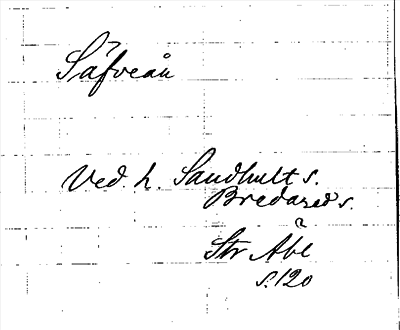 Säfveån
Ved. h. Sandhult s.
Bredared s.
Str Äbl
s. 120